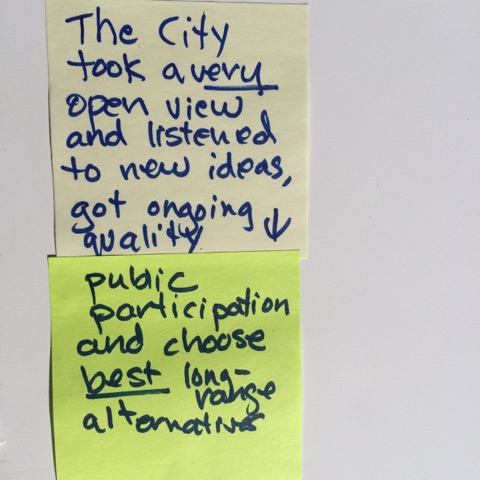 The City
took a very
open view
and listened
to new ideas,
got ongoing
quality ↓
public
participation
and choose
best long-
range
alternatives